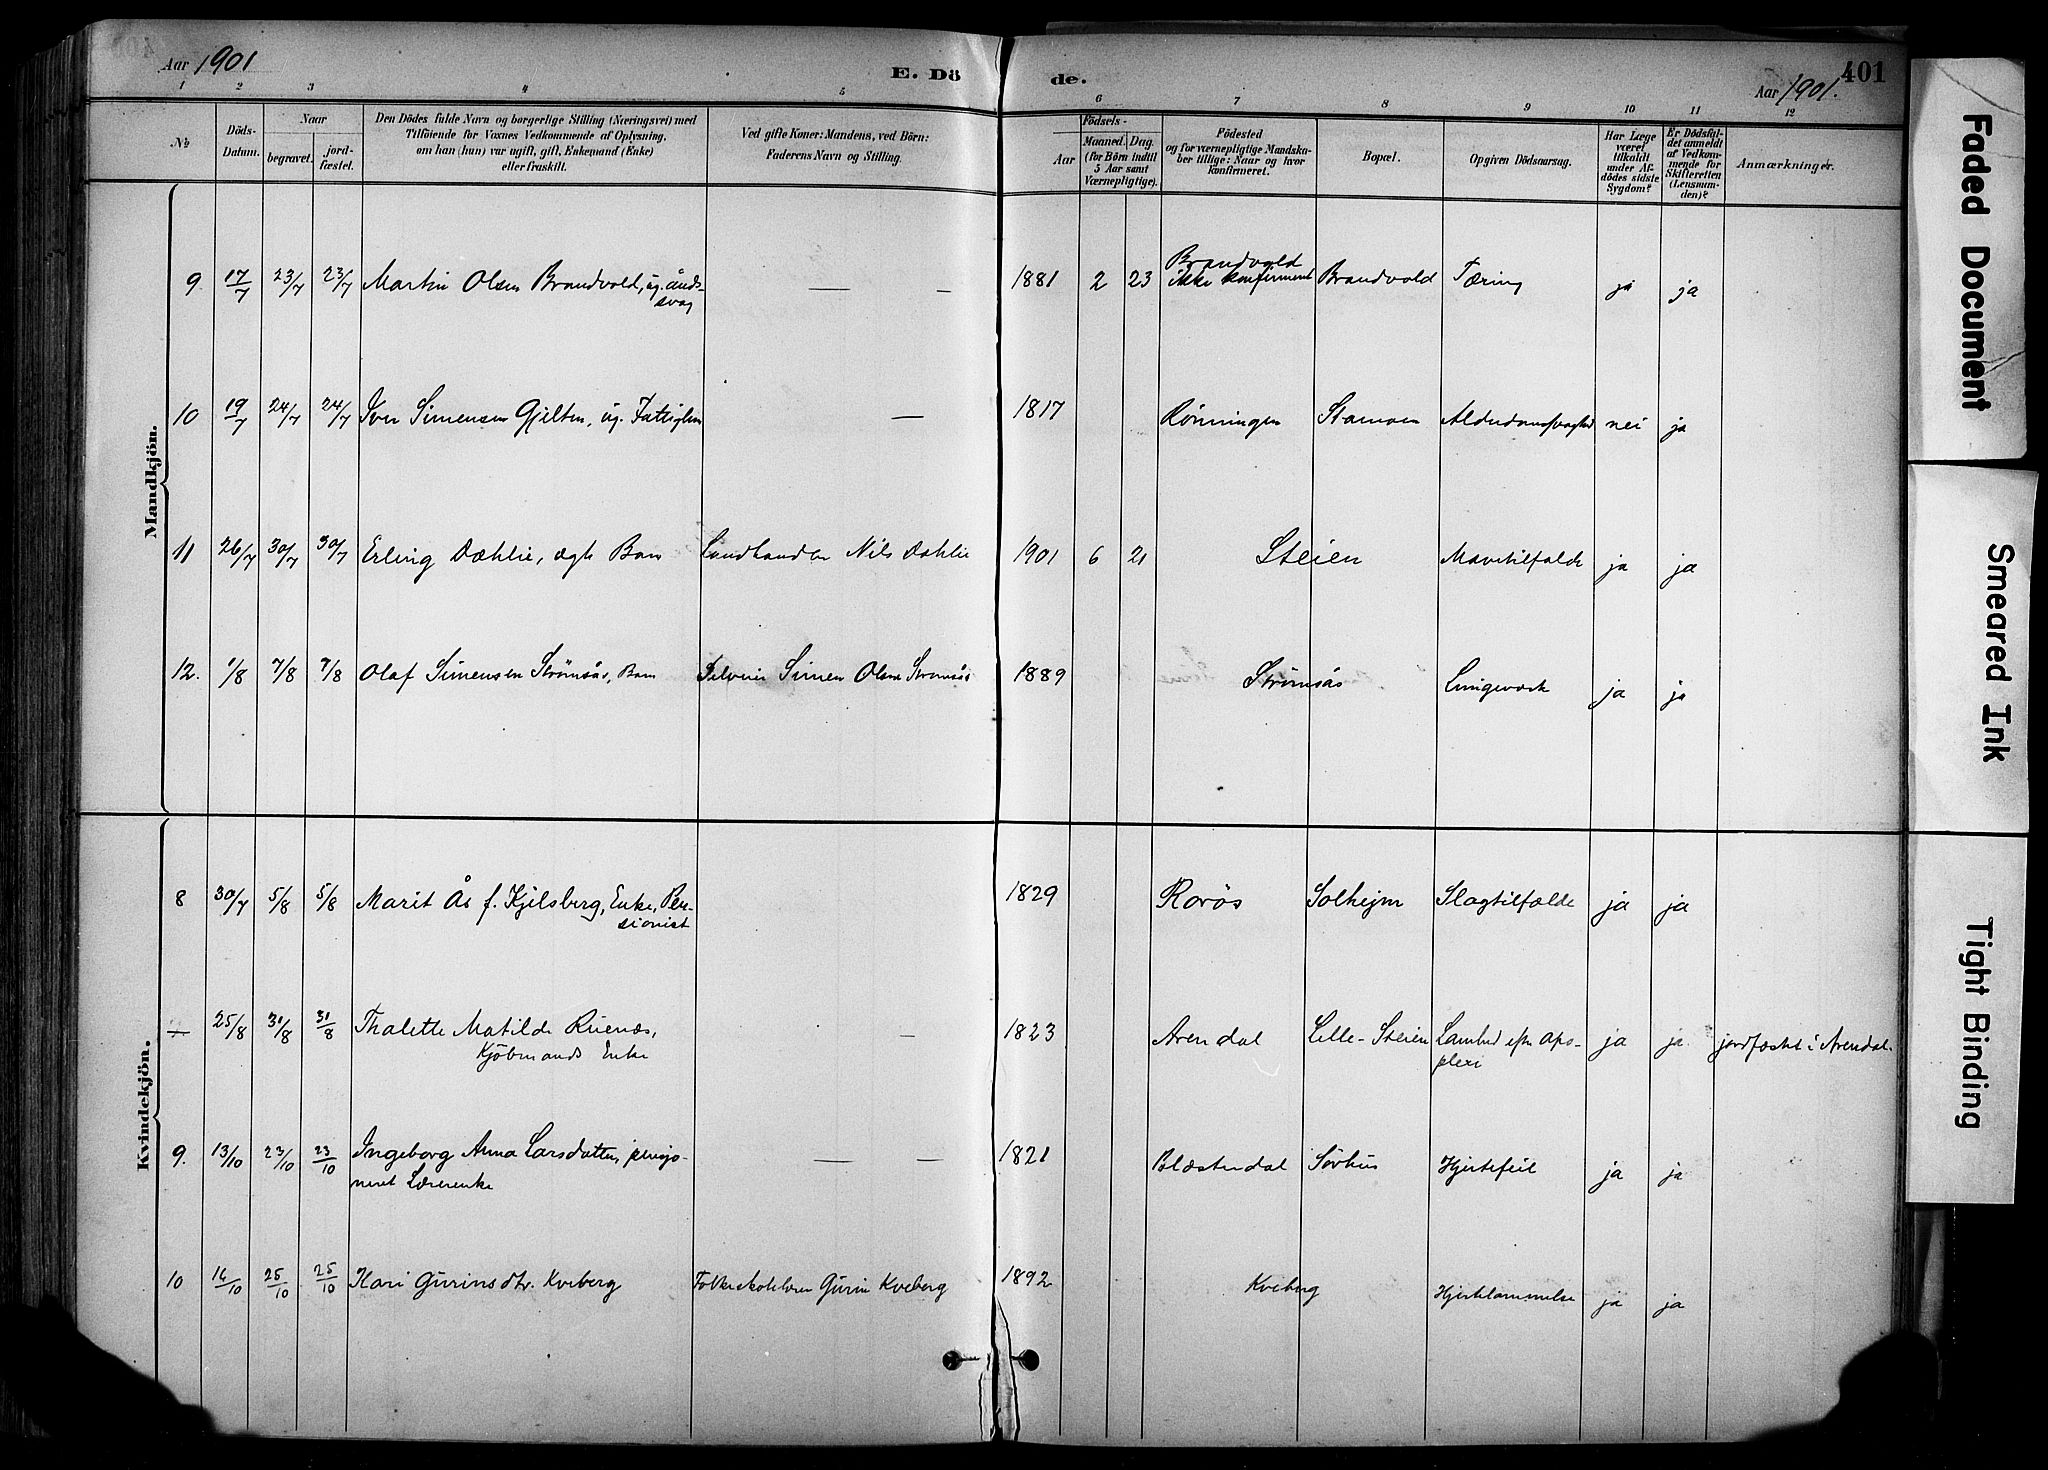 Aar 1901
E. Dö
de.
401
Aar 1901.
1 2 3 4 5 6 7 8 9 10 11 12
№
Döds-Datum.
Naar
begravet.
jord-fæstet.
Den Dödes fulde Navn og borgerlige Stilling (Næringsvei) med
Tilföiende for Voxnes Vedkommende af Oplysning,
om han (hun) var ugift, gift, Enkemand (Enke)
eller fraskilt.
Ved gifte Koner: Mandens, ved Börn:
Faderens Navn og Stilling.
Födsels-
Aar
Maaned. Dag.
(for Börn indtil
5 Aar samt
Værnepligtige).
Födested
og for værnepligtige Mandska-
ber tillige: Naar og hvor
konfirmeret.
Bopæl.
Opgiven Dödsaarsag.
Har Læge
været
tilkaldt
under Af-
dödes sidste
Sygdom?
Er Dödsfal-
det anmeldt
af Vedkom-
mende for
Skifteretten
(Lensman-
den)?
Anmærkninger.
Mandkjön.
9 17/7 23/7 23/7 Martin Olsen Brandvold, ug. ånds-
svag — — 1881 2 23 Brandvold
ikke konfirmert Brandvold Tæring ja ja
10 19/7 24/7 24/7 Iver Simensen Gjelten, ug. Fattiglem — 1817 Rønningen Stamoen nei ja
11 26/7 30/7 30/7 Erling Dæhlie, ægte Barn Landhandler Nils Dæhlie 1901 6 21 Steien Mavetilfælde ja ja
12. 1/8 7/8 7/8 Olaf Simensen Strømsås, Barn Selveier Simen Olsen Strømsås 1889 Strømsås Lungeværk ja ja
Kvindekjön.
8 30/7 5/8 5/8 Marit Ås f. Kjelsberg, Enke, Pen-
sionist 1829 Rørøs Solhejm Slagtilfælde ja ja
— 25/8 31/8 31/8 Thalette Matilde Ruenæs,
Kjøbmands Enke — 1823 Arendal Lille-Steien Lamhed efter Apo-
plexi ja ja jordfæstet i Arendal.
9. 13/10 23/10 23/10 Ingeborg Anna Larsdatter, pensjo-
neret Lærerenke — — 1821 Blæsterdal Sørhus Hjertefeil ja ja
10 16/10 25/10 25/10 Kari Gurinsdtr. Kveberg Folkeskolelærer Gurin Kveberg 1892 Kveberg Hjertelammelse ja ja
Faded Document
Smeared Ink
Tight Binding